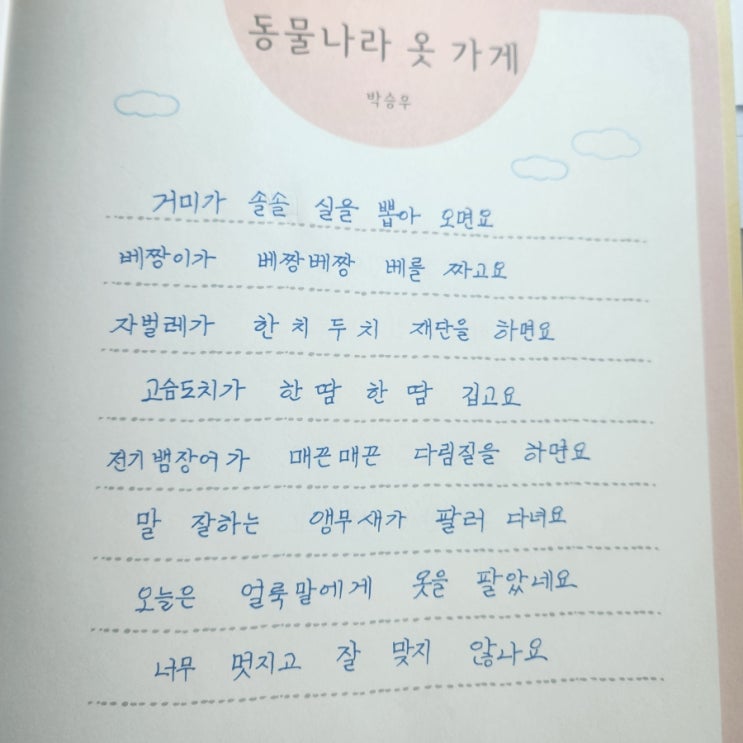 동물나라 옷 가게
박승우
거미가 솔솔 실을 뽑아 오면요
베짱이가 베짱베짱 베를 짜고요
자벌레가 한 치 두 치 재단을 하면요
고슴도치가 한 땀 한 땀 깁고요
전기뱀장어가 매끈매끈 다림질을 하면요
말 잘하는 앵무새가 팔러 다녀요
오늘은 얼룩말에게 옷을 팔았네요
너무 멋지고 잘 맞지 않나요